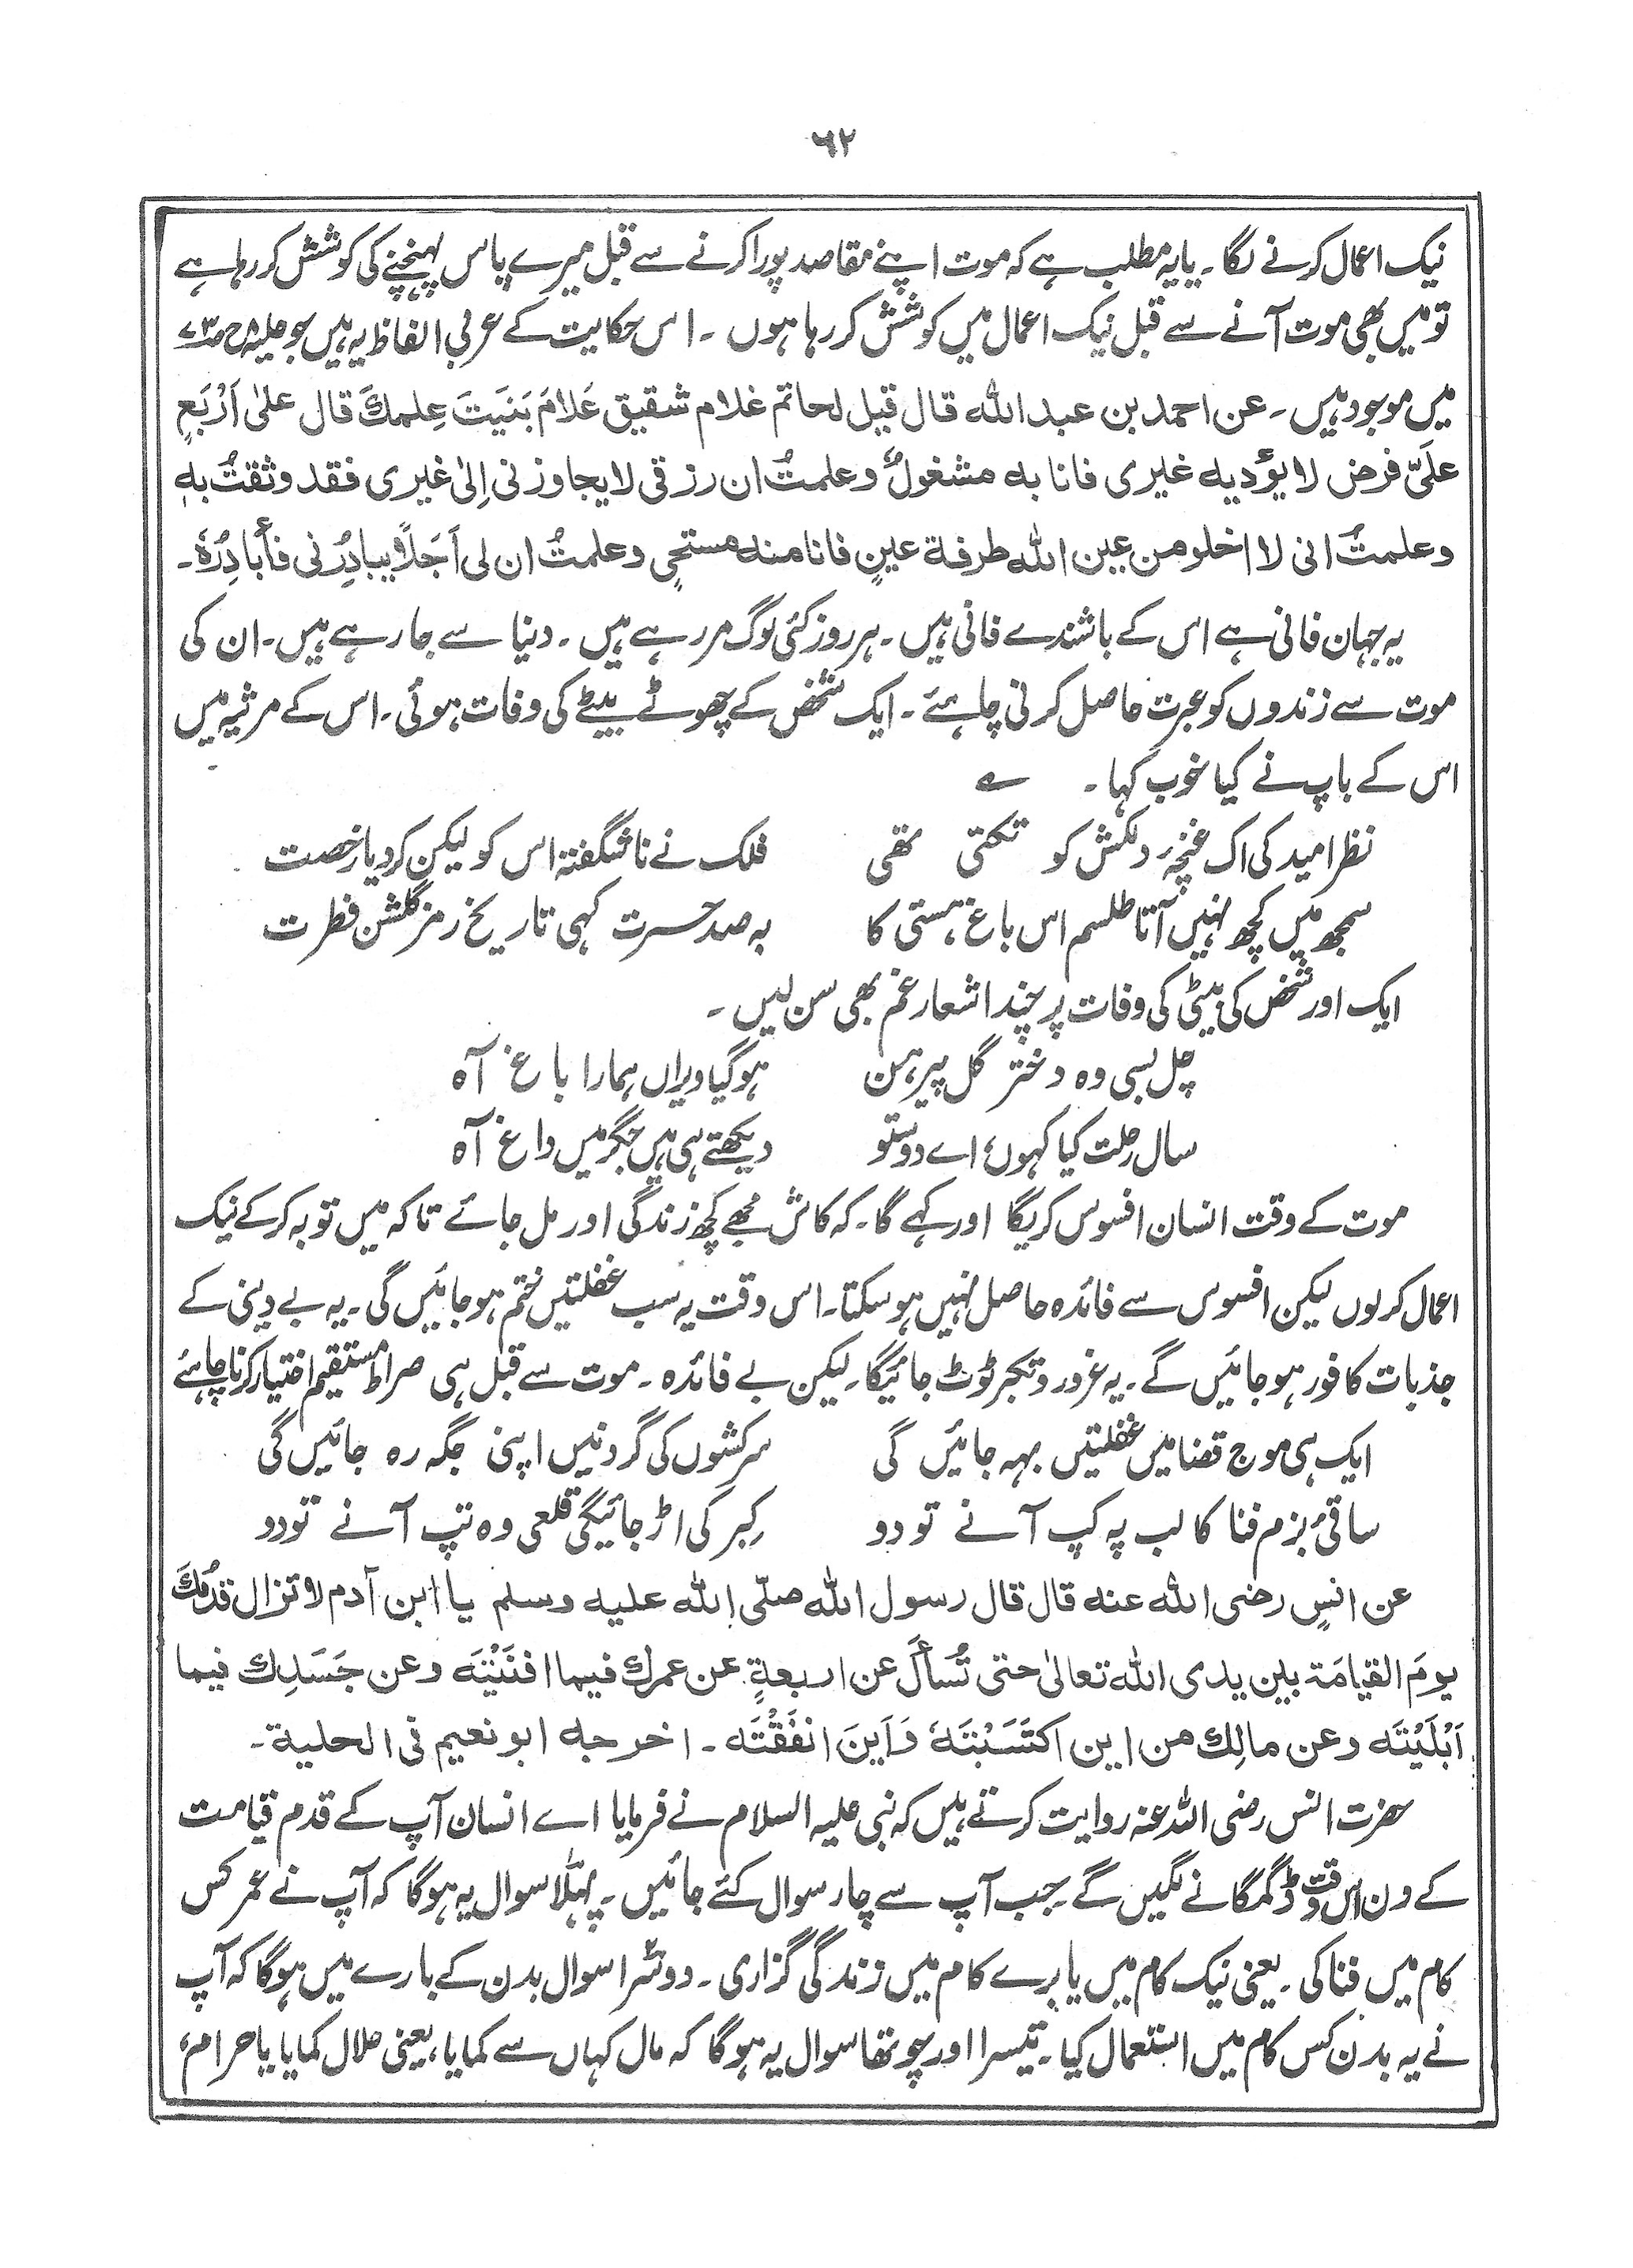 ٦٢
نیک اعمال کرنے لگا۔ یا یہ مطلب ہے کہ موت اپنے مقاصد پورا کرنے سے قبل میرے پاس پہنچنے کی کوشش کر رہا ہے
تو میں بھی موت آنے سے قبل نیک اعمال میں کوشش کر رہا ہوں ۔ اس حکایت کے عربی الفاظ یہ ہیں جو حلیہ
میں موجود ہیں۔ عن احمد بن عبد اللّٰه قال قيل لحاتم غلام شقيق عَلَامَ بَنَيتَ عِلمكَ قال علىٰ اَرْبَعٍ
علَىَّ فرض لا يؤديه غيرى فانا به مشغولٌ وعلمتُ ان رزقى لا يجاوزنى اِلىٰ غيرى فقد وثقتُ به
وعلمتُ انى لا اخلو من عين اللّٰه طرفة عينٍ فانا منه مستحىٍ وعلمتُ ان لى اَجَلًا يبادِرُنى فأبادِرُهٗ۔
یہ جہان فانی ہے اس کے باشندے فانی ہیں۔ ہر روز کئی لوگ مر رہے ہیں۔ دنیا سے جا رہے ہیں۔ ان کی
موت سے زندوں کو عبرت حاصل کرنی چاہئے۔ ایک شخص کے چھوٹے بیٹے کی وفات ہوئی۔ اس کے مرثیہ میں
اس کے باپ نے کیا خوب کہا۔ ؎
نظر امید کی اک غنچۂ دلکش کو تکتی تھی فلک نے ناشگفتہ اس کو لیکن کر دیا رخصت
سمجھ میں کچھ نہیں آتا طلسم اس باغ ہستی کا بہ صد حسرت کہی تاریخ رمز گلشن فطرت
ایک اور شخص کی بیٹی کی وفات پر چند اشعار غم بھی سن لیں۔
چل بسی وہ دختر گل پیرہن ہو گیا ویراں ہمارا باغ آہ
سال رحلت کیا کہوں، اے دوستو دیکھتے ہی ہیں جگر میں داغ آہ
موت کے وقت انسان افسوس کریگا اور کہے گا۔ کہ کاش مجھے کچھ زندگی اور مل جائے تاکہ میں توبہ کر کے نیک
اعمال کر لوں لیکن افسوس سے فائدہ حاصل نہیں ہو سکتا۔ اس وقت یہ سب غفلتیں ختم ہو جائیں گی۔ یہ بے دینی کے
جذبات کافور ہو جائیں گے۔ یہ غرور و تکبر ٹوٹ جائیگا۔ لیکن بے فائدہ۔ موت سے قبل ہی صراط مستقیم اختیار کرنا چاہئے
ایک ہی موج قضا میں غفلتیں بہہ جائیں گی سرکشوں کی گردنیں اپنی جگہ رہ جائیں گی
ساقیٔ بزم فنا کا لب پہ کپ آنے تو دو کبر کی اڑ جائیگی قلعی وہ تپ آنے تو دو
عن انسٍ رضى اللّٰه عنه قال قال رسول اللّٰه صلّى اللّٰه عليه وسلم يا ابن آدم لا تزال قدمُكَ
يومَ القيامَة بين يدى اللّٰه تعالىٰ حتى تُسأَلَ عن اربعةٍ عن عمرك فيما افنَيْتَه وعن جَسَدِك فيما
اَبْلَيْتَه وعن مالِك من اين اكتَسَبْتَهٗ وَاَينَ انفَقْتَه ۔ اخرجه ابو نعيم فى الحلية۔
حضرت انس رضی اللہ عنہ روایت کرتے ہیں کہ نبی علیہ السلام نے فرمایا اے انسان آپ کے قدم قیامت
کے دن اس وقت ڈگمگانے لگیں گے جب آپ سے چار سوال کئے جائیں۔ پہلا سوال یہ ہوگا کہ آپ نے عمر کس
کام میں فنا کی۔ یعنی نیک کام میں یا برے کام میں زندگی گزاری۔ دوسرا سوال بدن کے بارے میں ہوگا کہ آپ
نے یہ بدن کس کام میں استعمال کیا۔ تیسرا اور چوتھا سوال یہ ہوگا کہ مال کہاں سے کمایا، یعنی حلال کمایا یا حرام،